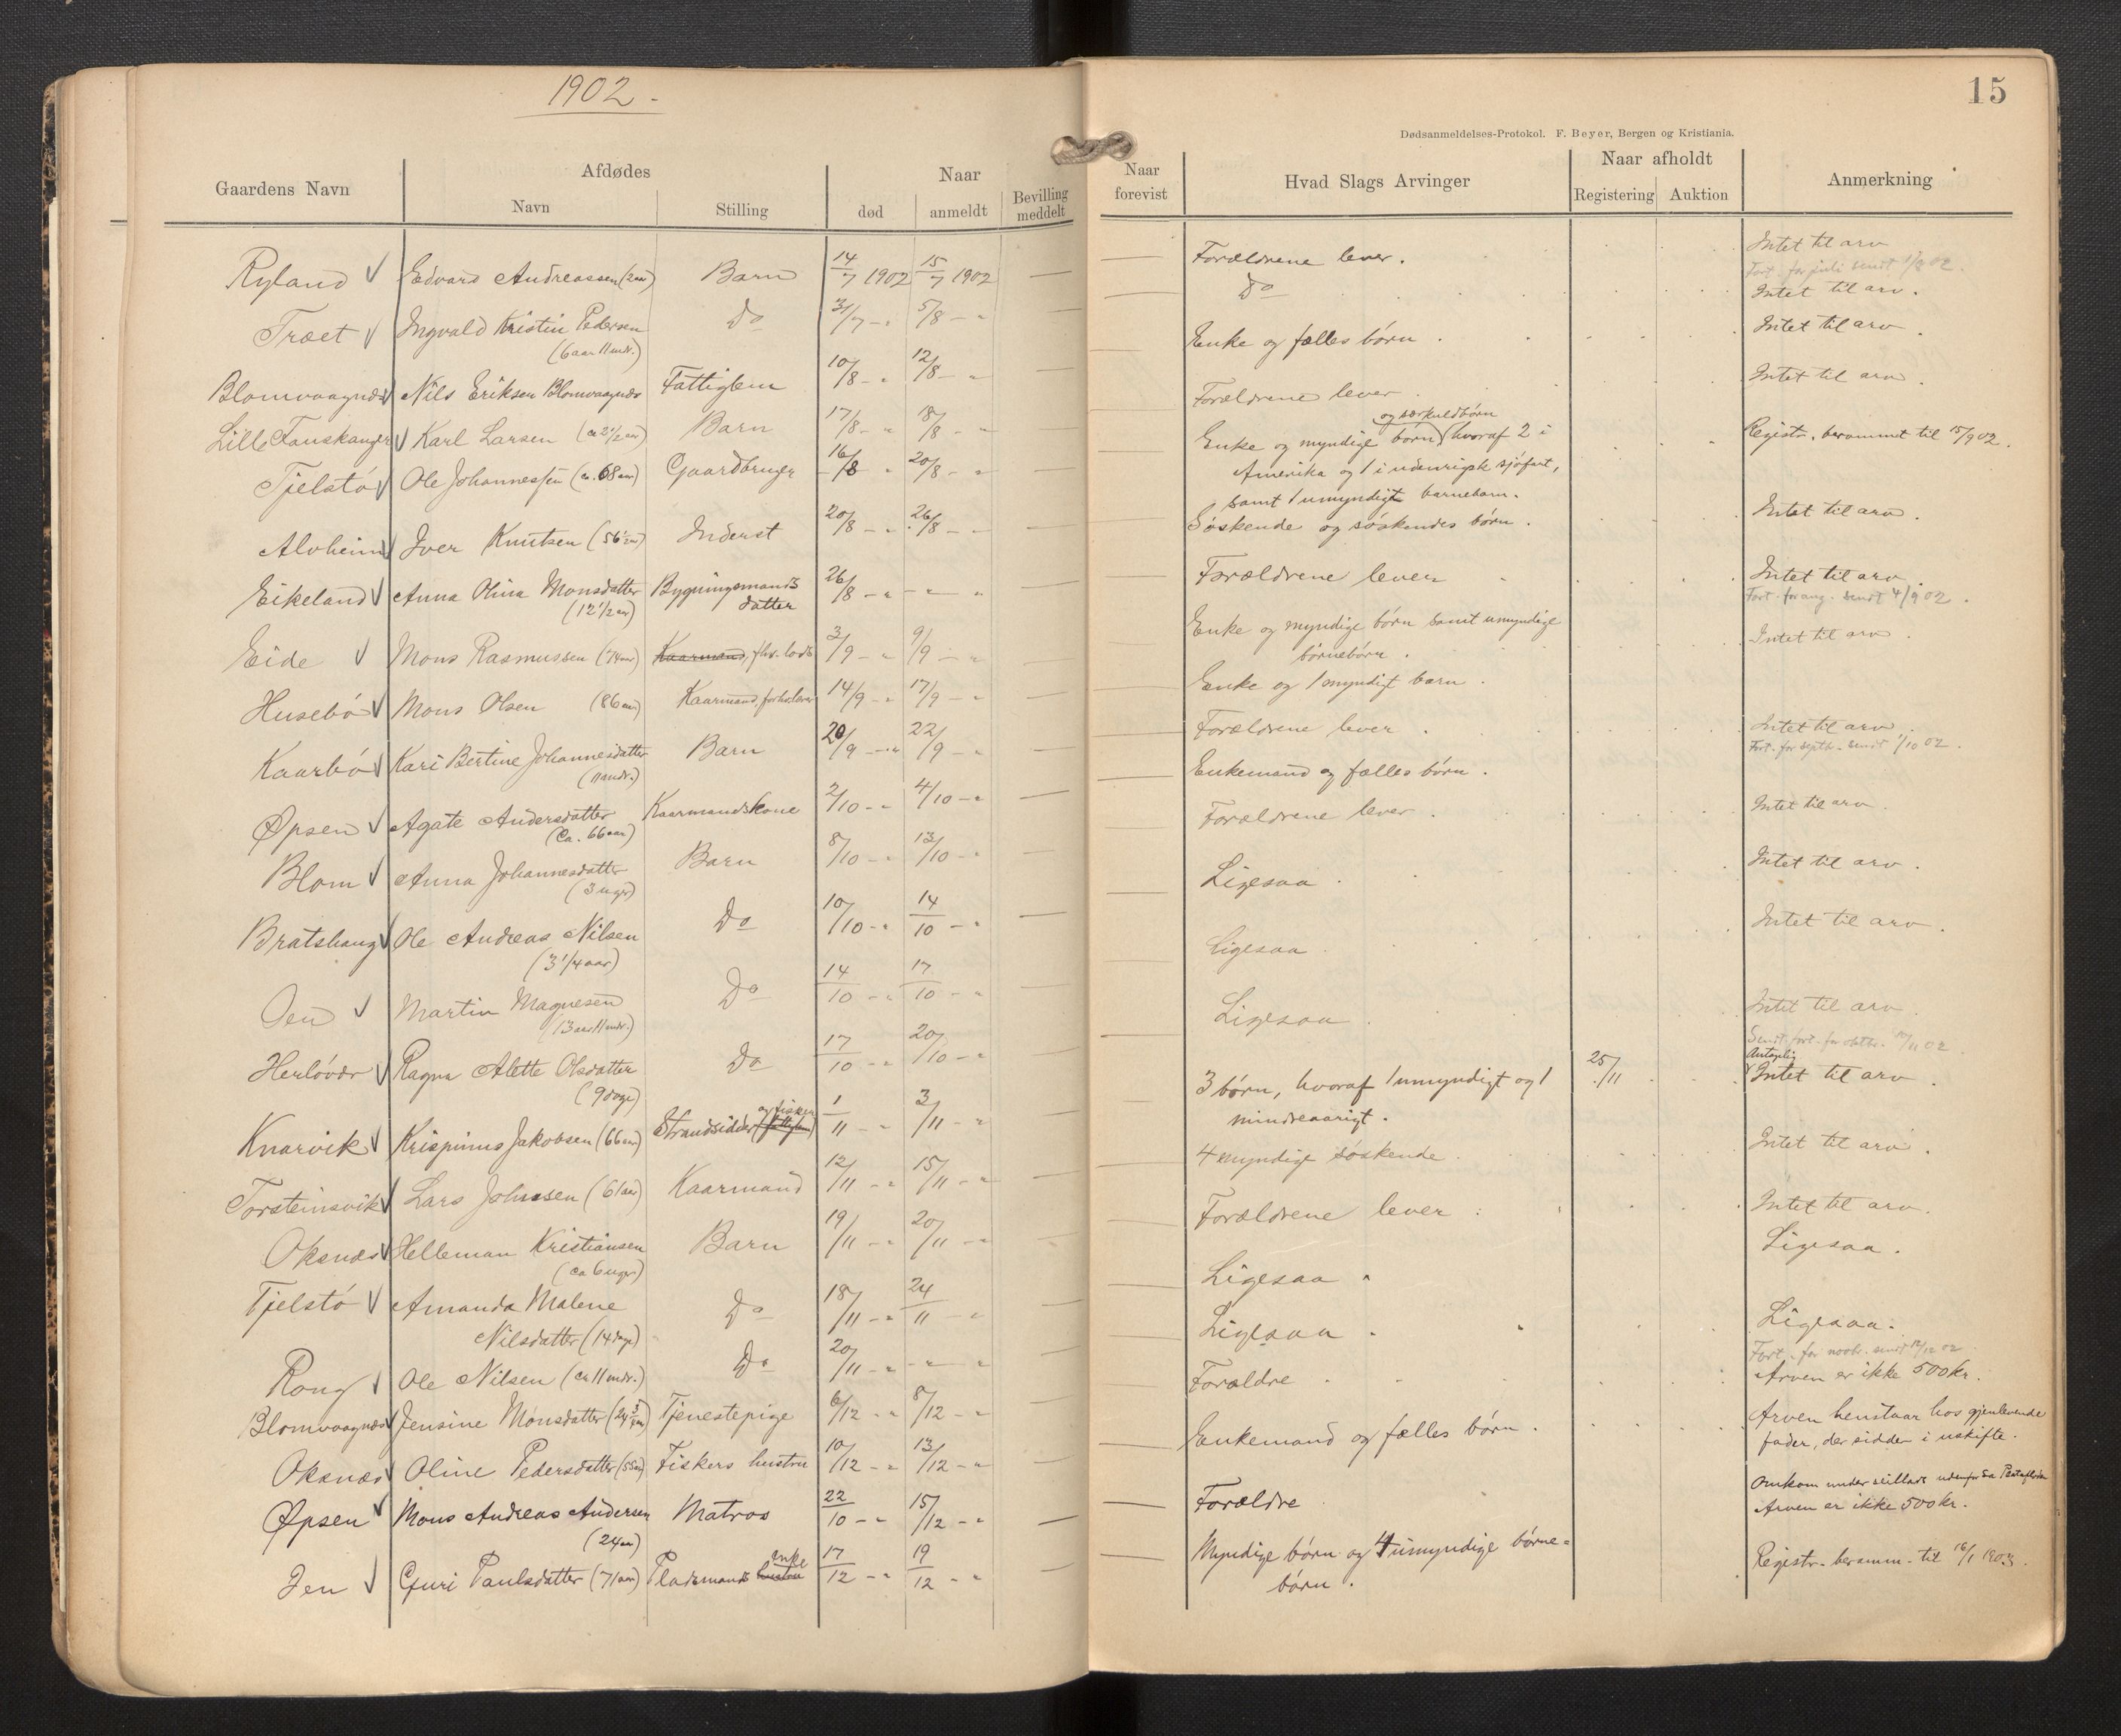 1902 -
15
Dødsanmeldelses-Protokol. F. Beyer, Bergen og Kristiania.
Gaardens Navn
Afdødes
Navn
Stilling
Naar
død
anmeldt
Bevilling meddelt
Naar forevist
Hvad Slags Arvinger
Naar afholdt
Registering
Auktion
Anmerkning
Ryland √ Edvard Andreassen (2 aar) Barn 14/7 1902 15/7 1902 —
Træet √ Ingvald Kristin Pedersen Do 31/7 - " 5/8 - " —
(6 aar 11 mdr.)
Blomvaagnæs √ Nils Eriksen Blomvaagnæs Fattiglem 10/8 - " 12/8 - " —
Lille Fauskanger √ Karl Larsen (ca 2 1/2 aar) Barn 17/8 - " 18/8 - " —
Tjelstö √ Ole Johannessen (ca. 68 aar) Gaardbruger 16/8 - " 20/8 - " —
Alvheim √ Iver Knutsen (56 1/2 aar) Inderst 20/8 - " 26/8 - " —
Eikeland √ Anna Olina Monsdatter Bygningsmands 26/8 - " - " - " —
(12 1/2 aar) datter
Eide √ Mons Rasmussen (74 aar) Kaarmand, fhv. lods 3/9 - " 9/9 - " —
Husebö √ Mons Olsen (86 aar) Kaarmand, 14/9 - " 17/9 - " —
Kaarbö √ Kari Bertine Johannesdatter Barn 20/9 - " 22/9 - " —
(11 mndr.)
Øpsen √ Agate Andersdatter Kaarmandskone 2/10 - " 4/10 - " —
(Ca. 66 aar)
Blom √ Anna Johannesdatter Barn 8/10 - " 13/10 - " —
(3 uger)
Bratshaug √ Ole Andreas Nilsen Do 10/10 - " 14/10 - " —
(3 1/4 aar)
Oen √ Martin Magnesen Do 14/10 - " 17/10 - " —
(13 aar 11 mdr.)
Herlövær √ Ragna Alette Olsdatter Do 17/10 - " 20/10 - " —
(9 dage)
og fisker
Knarvik √ Krispinus Jakobsen (66 aar) Strandsidder (fattiglem) 1/11 - " 3/11 - " —
Torsteinsvik √ Lars Johnssen (61 aar) Kaarmand 12/11 - " 15/11 - " —
Oksnæs √ Helleman Kristiansen Barn 19/11 - " 20/11 - " —
(ca 6 uger)
Tjelstö √ Amanda Malene Do 18/11 - " 24/11 - " —
Nilsdatter (14 dage)
Rong √ Ole Nilsen (ca 11 mdr.) Do 20/11 - " - " - " —
Blomvaagnæs √ Jensine Monsdatter (24 3/4 aar) Tjenestepige 6/12 - " 8/12 - " —
Oksnæs √ Oline Pedersdatter (55 aar) Fiskers hustru 10/12 - " 13/12 - " —
Øpsen √ Mons Andreas Andersen Matros 22/10 - " 15/12 - " —
(24 aar)
enke
Jen √ Guri Paulsdatter (71 aar) Pladsmands hustru 17/12 - " 19/12 - " —
— Forældrene lever. Intet til arv
Fort. for juli sendt 1/8 02.
— Do Intet til arv.
— Enke og fælles børn. Intet til arv.
— Forældrene lever. Intet til arv.
og særkuldbörn
— Enke og myndige börn (hvoraf 2 i Registr. berammet til 15/9 02.
Amerika og 1 i udenrigsk sjöfart,
samt 1 umyndigt barnebarn.
— Söskende og söskendes börn. Intet til arv.
— Forældrene lever Intet til arv.
Fort. for aug. sendt 4/9 02.
— Enke og myndige börn samt umyndige Intet til arv.
börnebörn.
— Enke og 1 myndigt barn.
— Forældrene lever. Intet til arv.
Fort. for septbr. sendt 1/10 02.
— Enkemand og fælles børn.
— Forældrene lever. Intet til arv.
— Ligesaa. Intet til arv.
— Ligesaa Intet til arv.
— Ligesaa. Intet til arv.
Sendt fort. for oktbr. 11 02.
Antagelig
— 3 börn, hvoraf 1 umyndigt og 1 25/11 Intet til arv.
mindreaarigt.
— 4 myndige söskende. Intet til arv.
— Forældrene lever. Intet til arv.
— Ligesaa Ligesaa.
— Ligesaa Ligesaa.
Fort. for novbr. sendt 12 02.
— Forældre Arven er ikke 500 kr.
— Enkemand og fælles börn. Arven henstaar hos gjenlevende
fader, der sidder i uskifte.
Omkom under seillads udenfor
— Forældre Arven er ikke 500 kr.
— Myndige börn og 4 umyndige börne= Registr. beramm. til 16/1 1903.
börn.